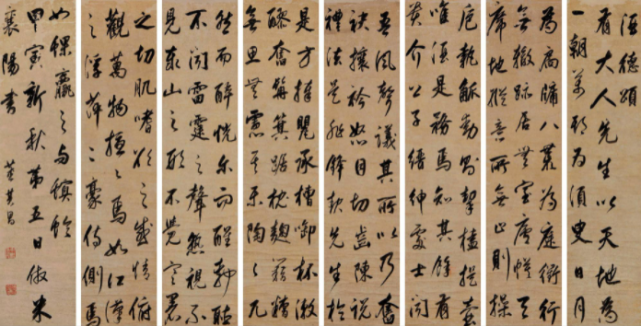 酒德頌
有大人先生以天地為
一朝萬期為須臾日月
為扃牖八荒為庭衢行
無轍跡居無室廬幕天
席地縱意所如止則操
卮執觚動則挈榼提壺
唯酒是務焉知其餘有
貴介公子縉紳處士聞
吾風聲議其所以乃奮
袂攘衿怒目切齒陳說
禮法是非鋒起先生於
是方捧甖承槽銜杯漱
醪奮髯箕踞枕麴藉糟
無思無慮其樂陶陶兀
然而醉恍爾而醒靜聽
不聞雷霆之聲熟視不
見泰山之形不覺寒暑
之切肌嗜欲之感情俯
觀萬物擾擾焉如江漢
之浮萍二豪侍側焉
如蜾蠃之與螟蛉
甲寅新秋第五日倣米
襄陽書
董其昌